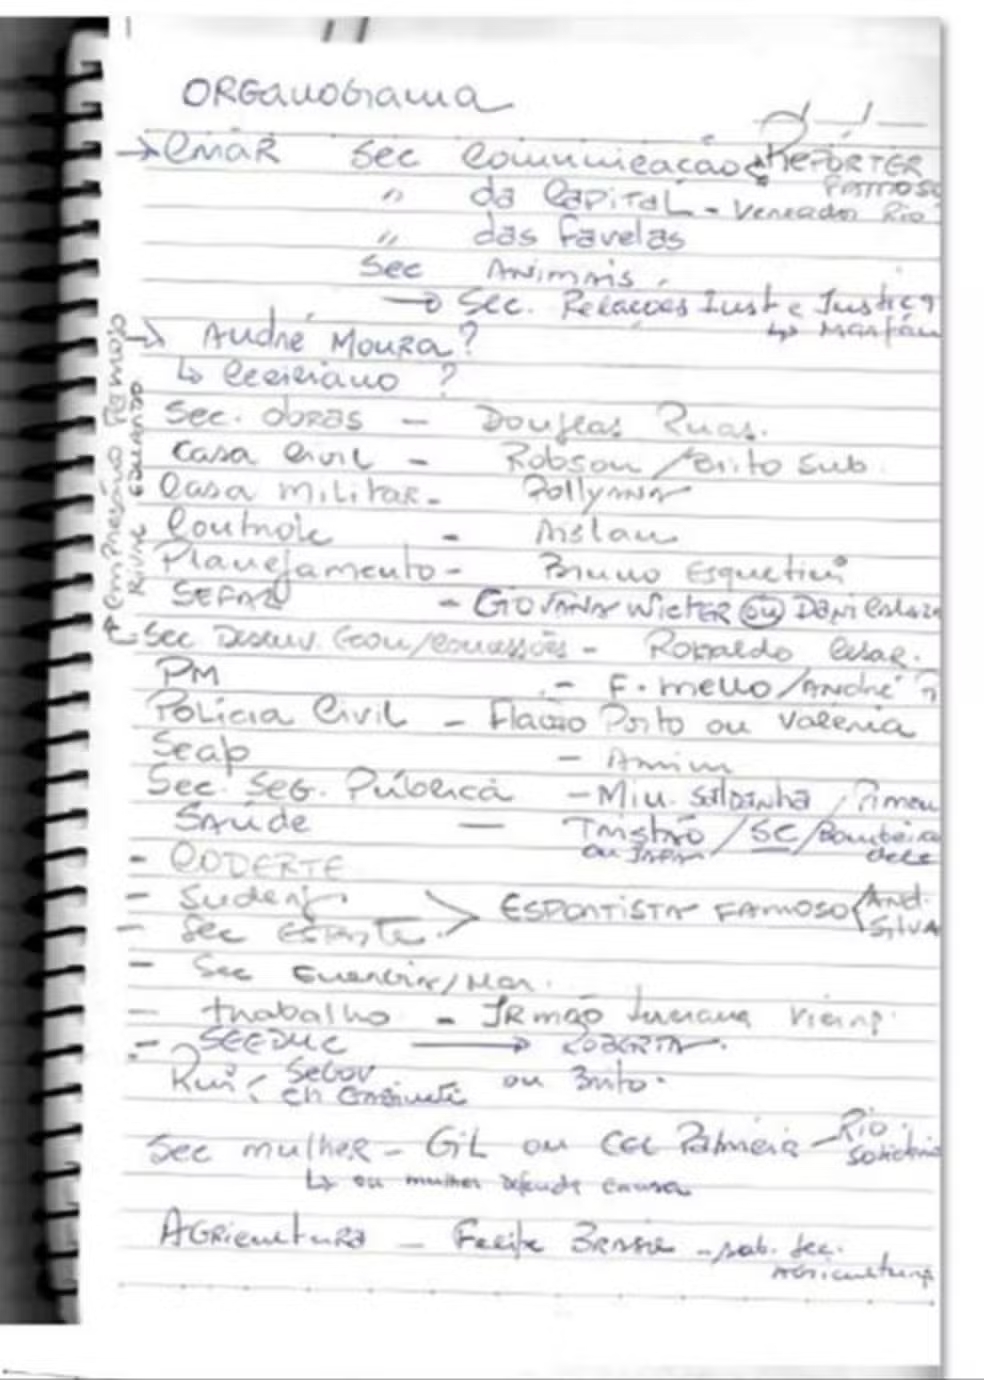 ORGanograma
→ CRIAR Sec Comunicação REPÓRTER FAMOSO
" da CAPITAL - Vereador Rio
" das favelas
Sec ANIMAIS
→ Sec. Relações Inst e Justiça
→ André Moura?
↳ Ceciliano ?
Sec. obras - Douglas Ruas.
Casa Civil - Robson / Brito Sub
Casa militar - Pollyana
Controle - Aislan
Planejamento - Bruno
SEFAZ - GIOVANA (ou) Dani
Sec Desenv. Econ/concessões - Ronaldo Cesar.
PM - F. mello / André
Polícia Civil - Flavio Porto ou Valeria
Seap -
Sec. Seg. Pública - SALDANHA /
Saúde - Tristão / SC / Bombeiro dele
- CODERTE
- Suderj
- Sec ESPORTE > ESPORTISTA FAMOSO < And. Silva
- Sec Energia/Mar.
- trabalho - IRmão
- SEEDUC → ROBERTA.
Rui < SeGov
Ch Gabinete ou Brito.
Sec mulher - GIL ou Cel Palmeira - Rio Solidário
↳ ou mulher defende causa
AGRicultura - Felipe BRASIL - sub. sec. agricultura
EMPRESÁRIO FAMOSO
EDUARDO